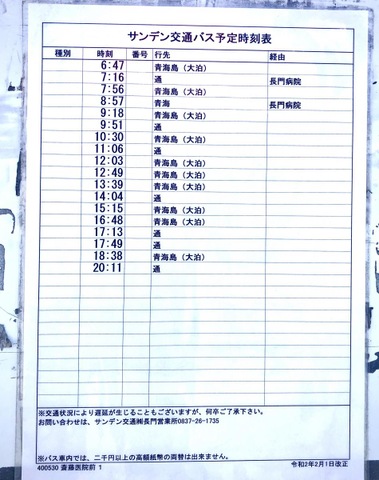 サンデン交通バス予定時刻表
種別 時刻 番号 行先 経由
6:47 青海島（大泊）
7:16 通 長門病院
7:56 青海島（大泊）
8:57 青海 長門病院
9:18 青海島（大泊）
9:51 通
10:30 青海島（大泊）
11:06 通
12:03 青海島（大泊）
12:49 青海島（大泊）
13:39 青海島（大泊）
14:04 通
15:15 青海島（大泊）
16:48 青海島（大泊）
17:13 通
17:49 通
18:38 青海島（大泊）
20:11 通
※交通状況により遅延が生じることもございますが、何卒ご了承下さい。
お問い合わせは、サンデン交通㈱長門営業所0837-26-1735
※バス車内では、二千円以上の高額紙幣の両替は出来ません。
400530 斎藤医院前 1 令和2年2月1日改正